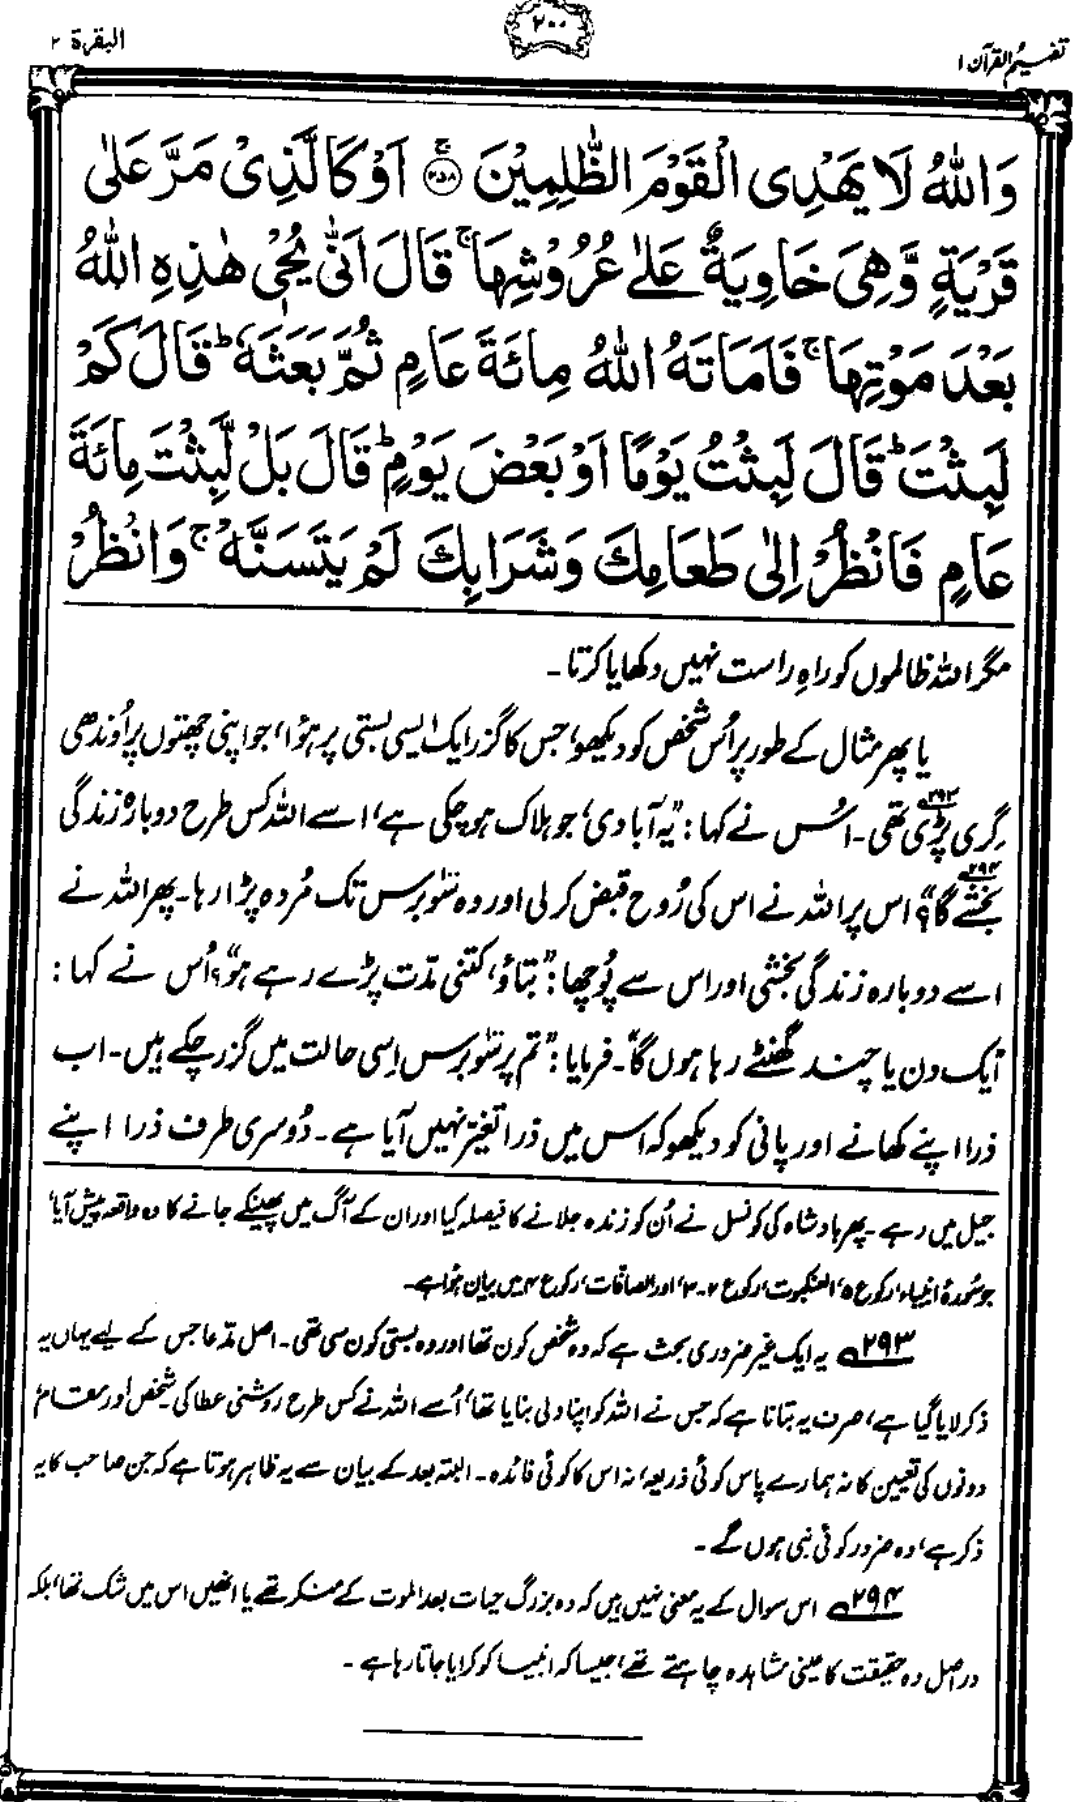 تفہیم القرآن ۱
۲۰۰
البقرۃ ۲
وَاللّٰهُ لَا يَهْدِى الْقَوْمَ الظّٰلِمِيْنَ ۚ‏﴿۲۵۸﴾ اَوْ كَالَّذِىْ مَرَّ عَلٰى
قَرْيَةٍ وَّهِىَ خَاوِيَةٌ عَلٰى عُرُوْشِهَا ۚ قَالَ اَنّٰى يُحْىٖ هٰذِهِ اللّٰهُ
بَعْدَ مَوْتِهَا ۚ فَاَمَاتَهُ اللّٰهُ مِائَةَ عَامٍ ثُمَّ بَعَثَهٗ ؕ قَالَ كَمْ
لَبِثْتَ ؕ قَالَ لَبِثْتُ يَوْمًا اَوْ بَعْضَ يَوْمٍ ؕ قَالَ بَلْ لَّبِثْتَ مِائَةَ
عَامٍ فَانْظُرْ اِلٰى طَعَامِكَ وَشَرَابِكَ لَمْ يَتَسَنَّهْ ۚ وَانْظُرْ
مگر اللہ ظالموں کو راہِ راست نہیں دکھایا کرتا۔
یا پھر مثال کے طور پر اُس شخص کو دیکھو، جس کا گزر ایک ایسی بستی پر ہوا، جو اپنی چھتوں پر اَوندھی
گِری پڑی تھی۔۲۹۳ اُس نے کہا: ”یہ آبادی، جو ہلاک ہو چکی ہے، اسے اللہ کس طرح دوبارہ زندگی
بخشے گا؟“۲۹۴ اس پر اللہ نے اس کی رُوح قبض کر لی اور وہ سَو برس تک مُردہ پڑا رہا۔ پھر اللہ نے
اسے دوبارہ زندگی بخشی اور اس سے پُوچھا: ”بتاؤ، کتنی مدّت پڑے رہے ہو؟“ اُس نے کہا:
”ایک دن یا چند گھنٹے رہا ہوں گا“۔ فرمایا: ”تم پر سَو برس اِسی حالت میں گزر چکے ہیں۔ اب
ذرا اپنے کھانے اور پانی کو دیکھو کہ اس میں ذرا تغیّر نہیں آیا ہے۔ دُوسری طرف ذرا اپنے
جیل میں رہے۔ پھر بادشاہ کی کونسل نے اُن کو زندہ جلانے کا فیصلہ کیا اور ان کے آگ میں پھینکے جانے کا وہ واقعہ پیش آیا،
جو سُورۂ انبیاء، رکوع ۵، العنکبوت، رکوع ۲-۳، اور الصافات، رکوع ۴ میں بیان ہُوا ہے۔
۲۹۳ یہ ایک غیر ضروری بحث ہے کہ وہ شخص کون تھا اور وہ بستی کون سی تھی۔ اصل مدّعا جس کے لیے یہاں یہ
ذکر لایا گیا ہے، صرف یہ بتانا ہے کہ جس نے اللہ کو اپنا ولی بنایا تھا، اُسے اللہ نے کس طرح روشنی عطا کی۔ شخص اور مقام
دونوں کی تعیین کا نہ ہمارے پاس کوئی ذریعہ، نہ اس کا کوئی فائدہ۔ البتہ بعد کے بیان سے یہ ظاہر ہوتا ہے کہ جن صاحب کا یہ
ذکر ہے، وہ ضرور کوئی نبی ہوں گے۔
۲۹۴ اس سوال کے یہ معنی نہیں ہیں کہ وہ بزرگ حیات بعد الموت کے منکر تھے یا انھیں اس میں شک تھا، بلکہ
دراصل وہ حقیقت کا عینی مشاہدہ چاہتے تھے، جیسا کہ انبیا کو کرایا جاتا رہا ہے۔